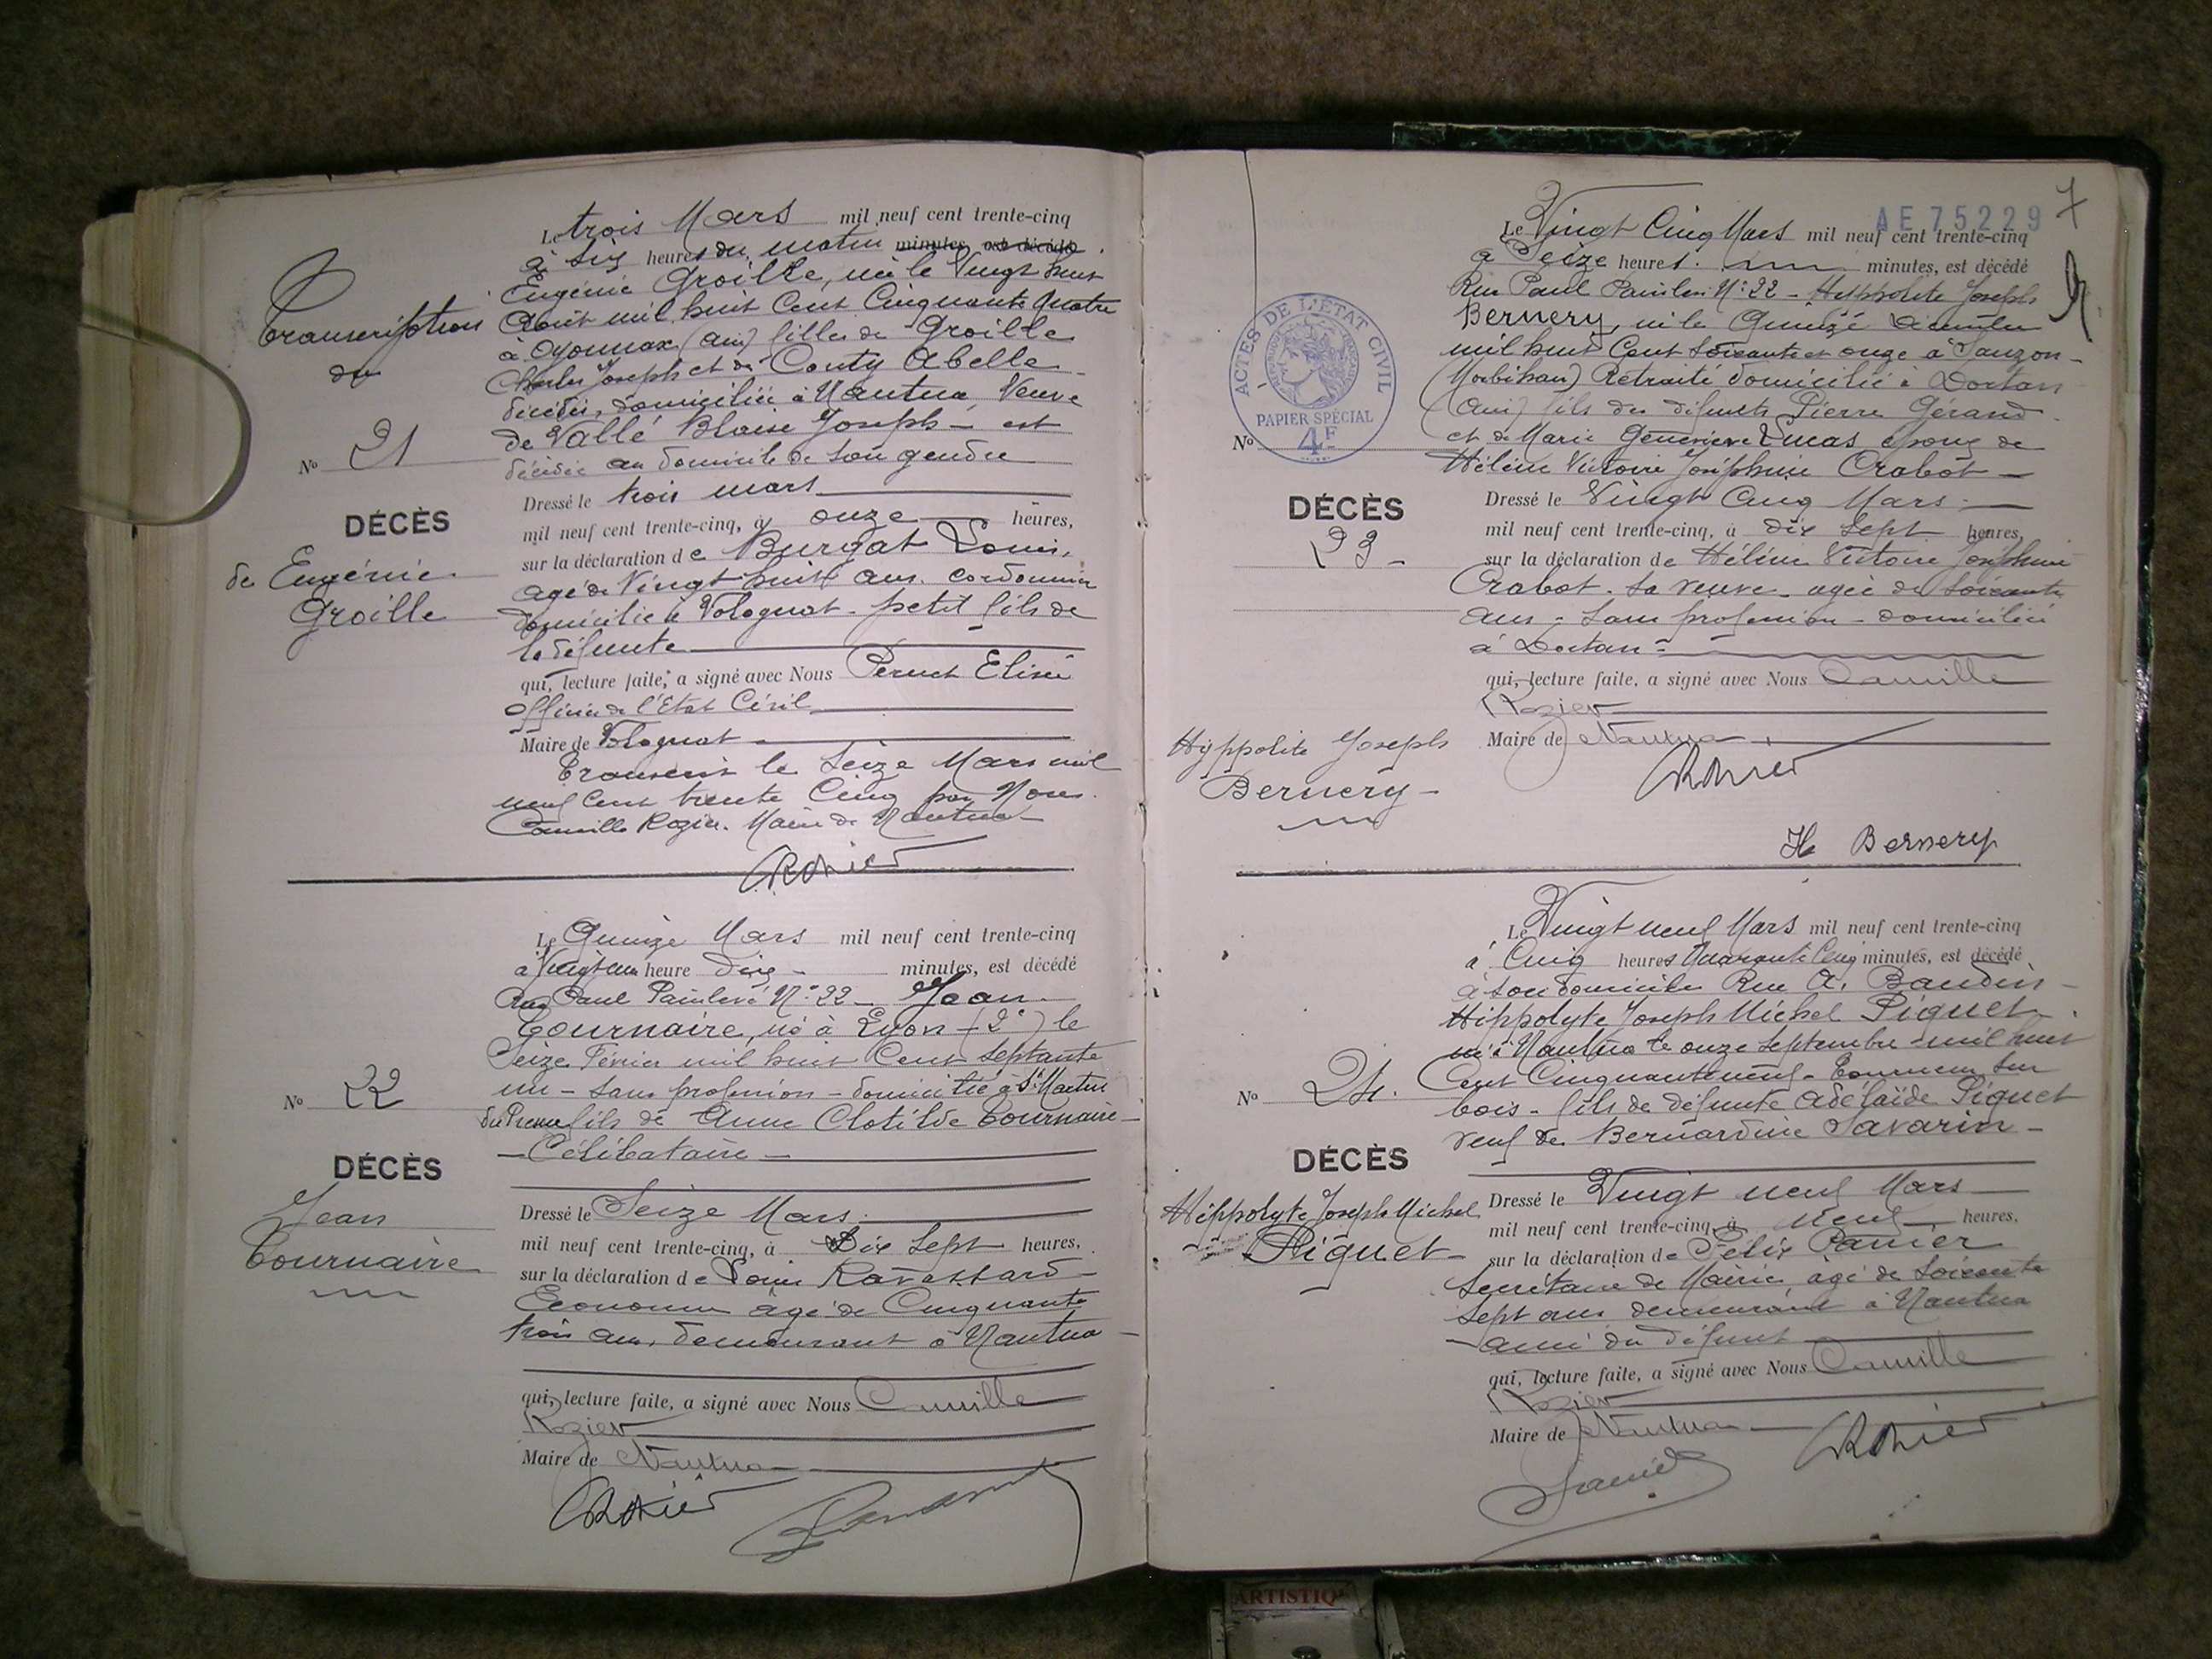 Transcription
du
Nº 21
DÉCÈS
de Eugénie
Groille
Le trois Mars mil neuf cent trente-cinq
à six heures du matin minutes, est décédé
Eugénie Groille, née le Vingt huit
Août mil huit Cent Cinquante Quatre
à Oyonnax (Ain) fille de Groille
Charles Joseph et de Conty Abelle
décédés, domiciliée à Nantua, Veuve
de Vallé Blaise Joseph - est
décédée au domicile de son gendre
Dressé le trois mars
mil neuf cent trente-cinq, à onze heures,
sur la déclaration de Burgat Louis,
agé de Vingt huit ans. cordonnier
domicilié à Volognat - petit fils de
la défunte
qui, lecture faite, a signé avec Nous Perret Elisée
officier de l'Etat Civil
Maire de Volognat
Transcrit le Seize Mars mil
neuf Cent trente Cinq par Nous
Camille Rozier. Maire de Nantua
CRozier
Nº 22
DÉCÈS
Jean
Tournaire
Le Quinze Mars mil neuf cent trente-cinq
à Vingt une heure Dix - minutes, est décédé
Rue Paul Painlevé Nº 22 - Jean
Tournaire, né à Lyon (2e) le
Seize Février mil huit Cent Septante
un - sans profession - domicilié à St Martin
du Fresne fils de Anne Clotilde Tournaire -
- Célibataire -
Dressé le Seize Mars
mil neuf cent trente-cinq, à Dix Sept heures,
sur la déclaration de Louis Ravassard
Econome âgé de Cinquante
trois ans, demeurant à Nantua -
qui, lecture faite, a signé avec Nous Camille
Rozier
Maire de Nantua
CRozier
AE 75229
7
ACTES DE L'ÉTAT CIVIL
PAPIER SPÉCIAL
4F
Nº
DÉCÈS
23 -
Hyppolite Joseph
Bernery -
Le Vingt Cinq Mars mil neuf cent trente-cinq
à Seize heures. minutes, est décédé
Rue Paul Painlevé Nº 22 - Hyppolite Joseph
Bernery, né le Quinze Décembre
mil huit Cent soixante et onze à Sauzon -
(Morbihan) Retraité domicilié à Dortan
(Ain) fils des défunts Pierre Gérand
et de Marie Geneviève Lucas époux de
Hélène Victoire Joséphine Crabot -
Dressé le Vingt Cinq Mars
mil neuf cent trente-cinq, à Dix Sept heures,
sur la déclaration de Hélène Victoire Joséphine
Crabot - sa veuve - agée de soixante
ans - Sans profession - domiciliée
à Dortan -
qui, lecture faite, a signé avec Nous Camille
Rozier
Maire de Nantua
CRozier
H Bernery
Nº 24.
DÉCÈS
Hippolyte Joseph Michel
Piguet -
Le Vingt neuf Mars mil neuf cent trente-cinq
à Cinq heures Quarante Cinq minutes, est décédé
à son domicile Rue A. Baudin -
Hippolyte Joseph Michel Piguet -
né à Nantua le onze Septembre mil huit
Cent Cinquante neuf - Tourneur sur
bois - fils de défunte Adélaïde Piguet
veuf de Bernardine Savarin -
Dressé le Vingt neuf Mars
mil neuf cent trente-cinq, à Neuf heures,
sur la déclaration de Félix Panier
Secrétaire de Mairie, âgé de soixante
sept ans demeurant à Nantua
- ami du défunt
qui, lecture faite, a signé avec Nous Camille
Rozier
Maire de Nantua
CRozier
ARTISTIQ